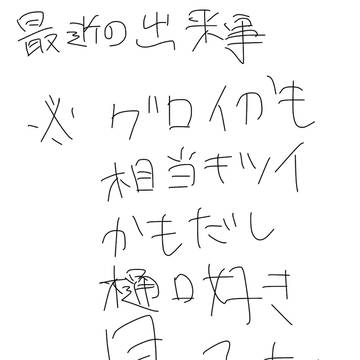 最近の出来事
※ グロイかも
相当キツイ
かもだし
樋口好き